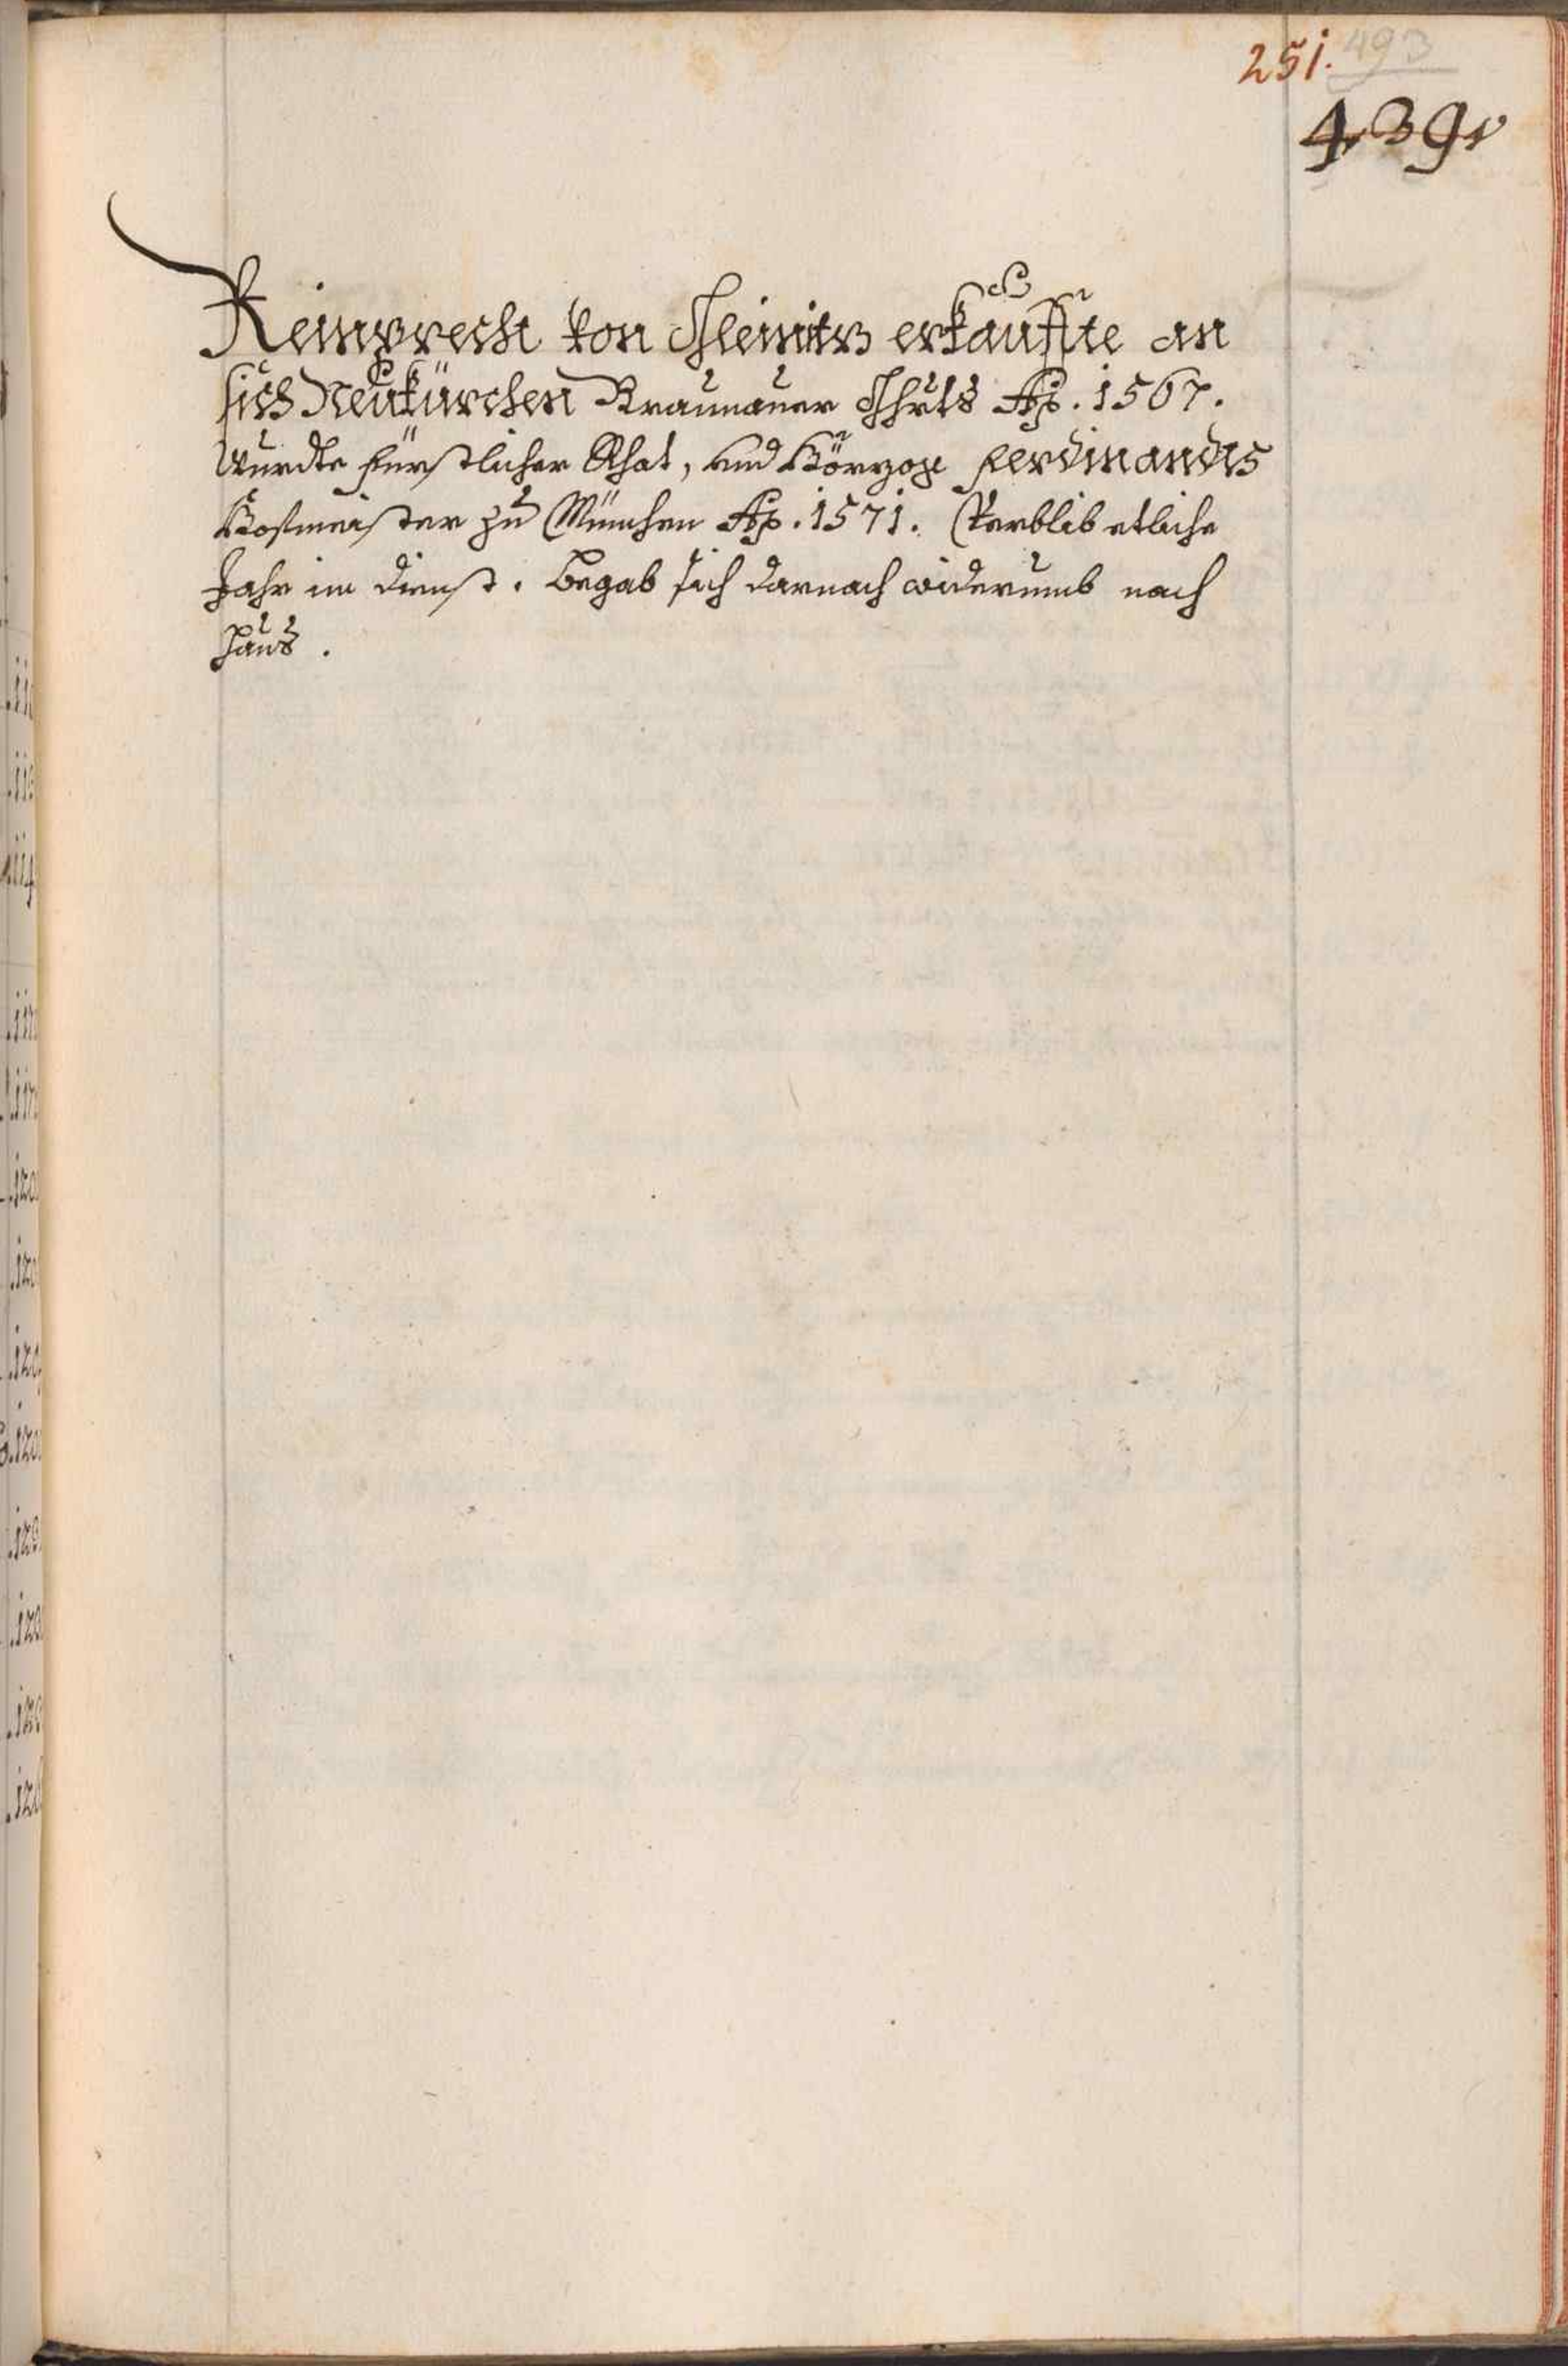 251. 493
439
Reinprecht von Gleinitz erkauffte an
sich Neukürchen Braunauer Ghrts Ao. 1567.
Wurdte fürstlicher Rhat, und Hörzog Ferdinandts
Hofmaister zu München Ao. 1571. Verblib etliche
Jahr im dienst. Begab sich darnach widerumb nach
haus.